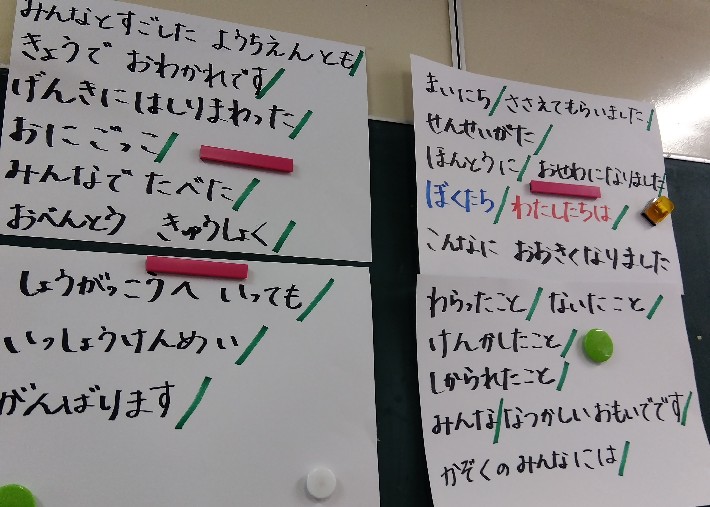 みんなとすごした ようちえんとも/
きょうで おわかれです/
げんきにはしりまわった/
おにごっこ/
みんなで たべた/
おべんとう きゅうしょく/
しょうがっこうへ いっても/
いっしょうけんめい/
がんばります/
まいにち/ささえてもらいました/
せんせいがた/
ほんとうに/おせわになりました
ぼくたち/わたしたちは/
こんなに おおきくなりました
わらったこと/ないたこと/
けんかしたこと/
しかられたこと/
みんな/なつかしいおもいでです/
かぞくのみんなには/